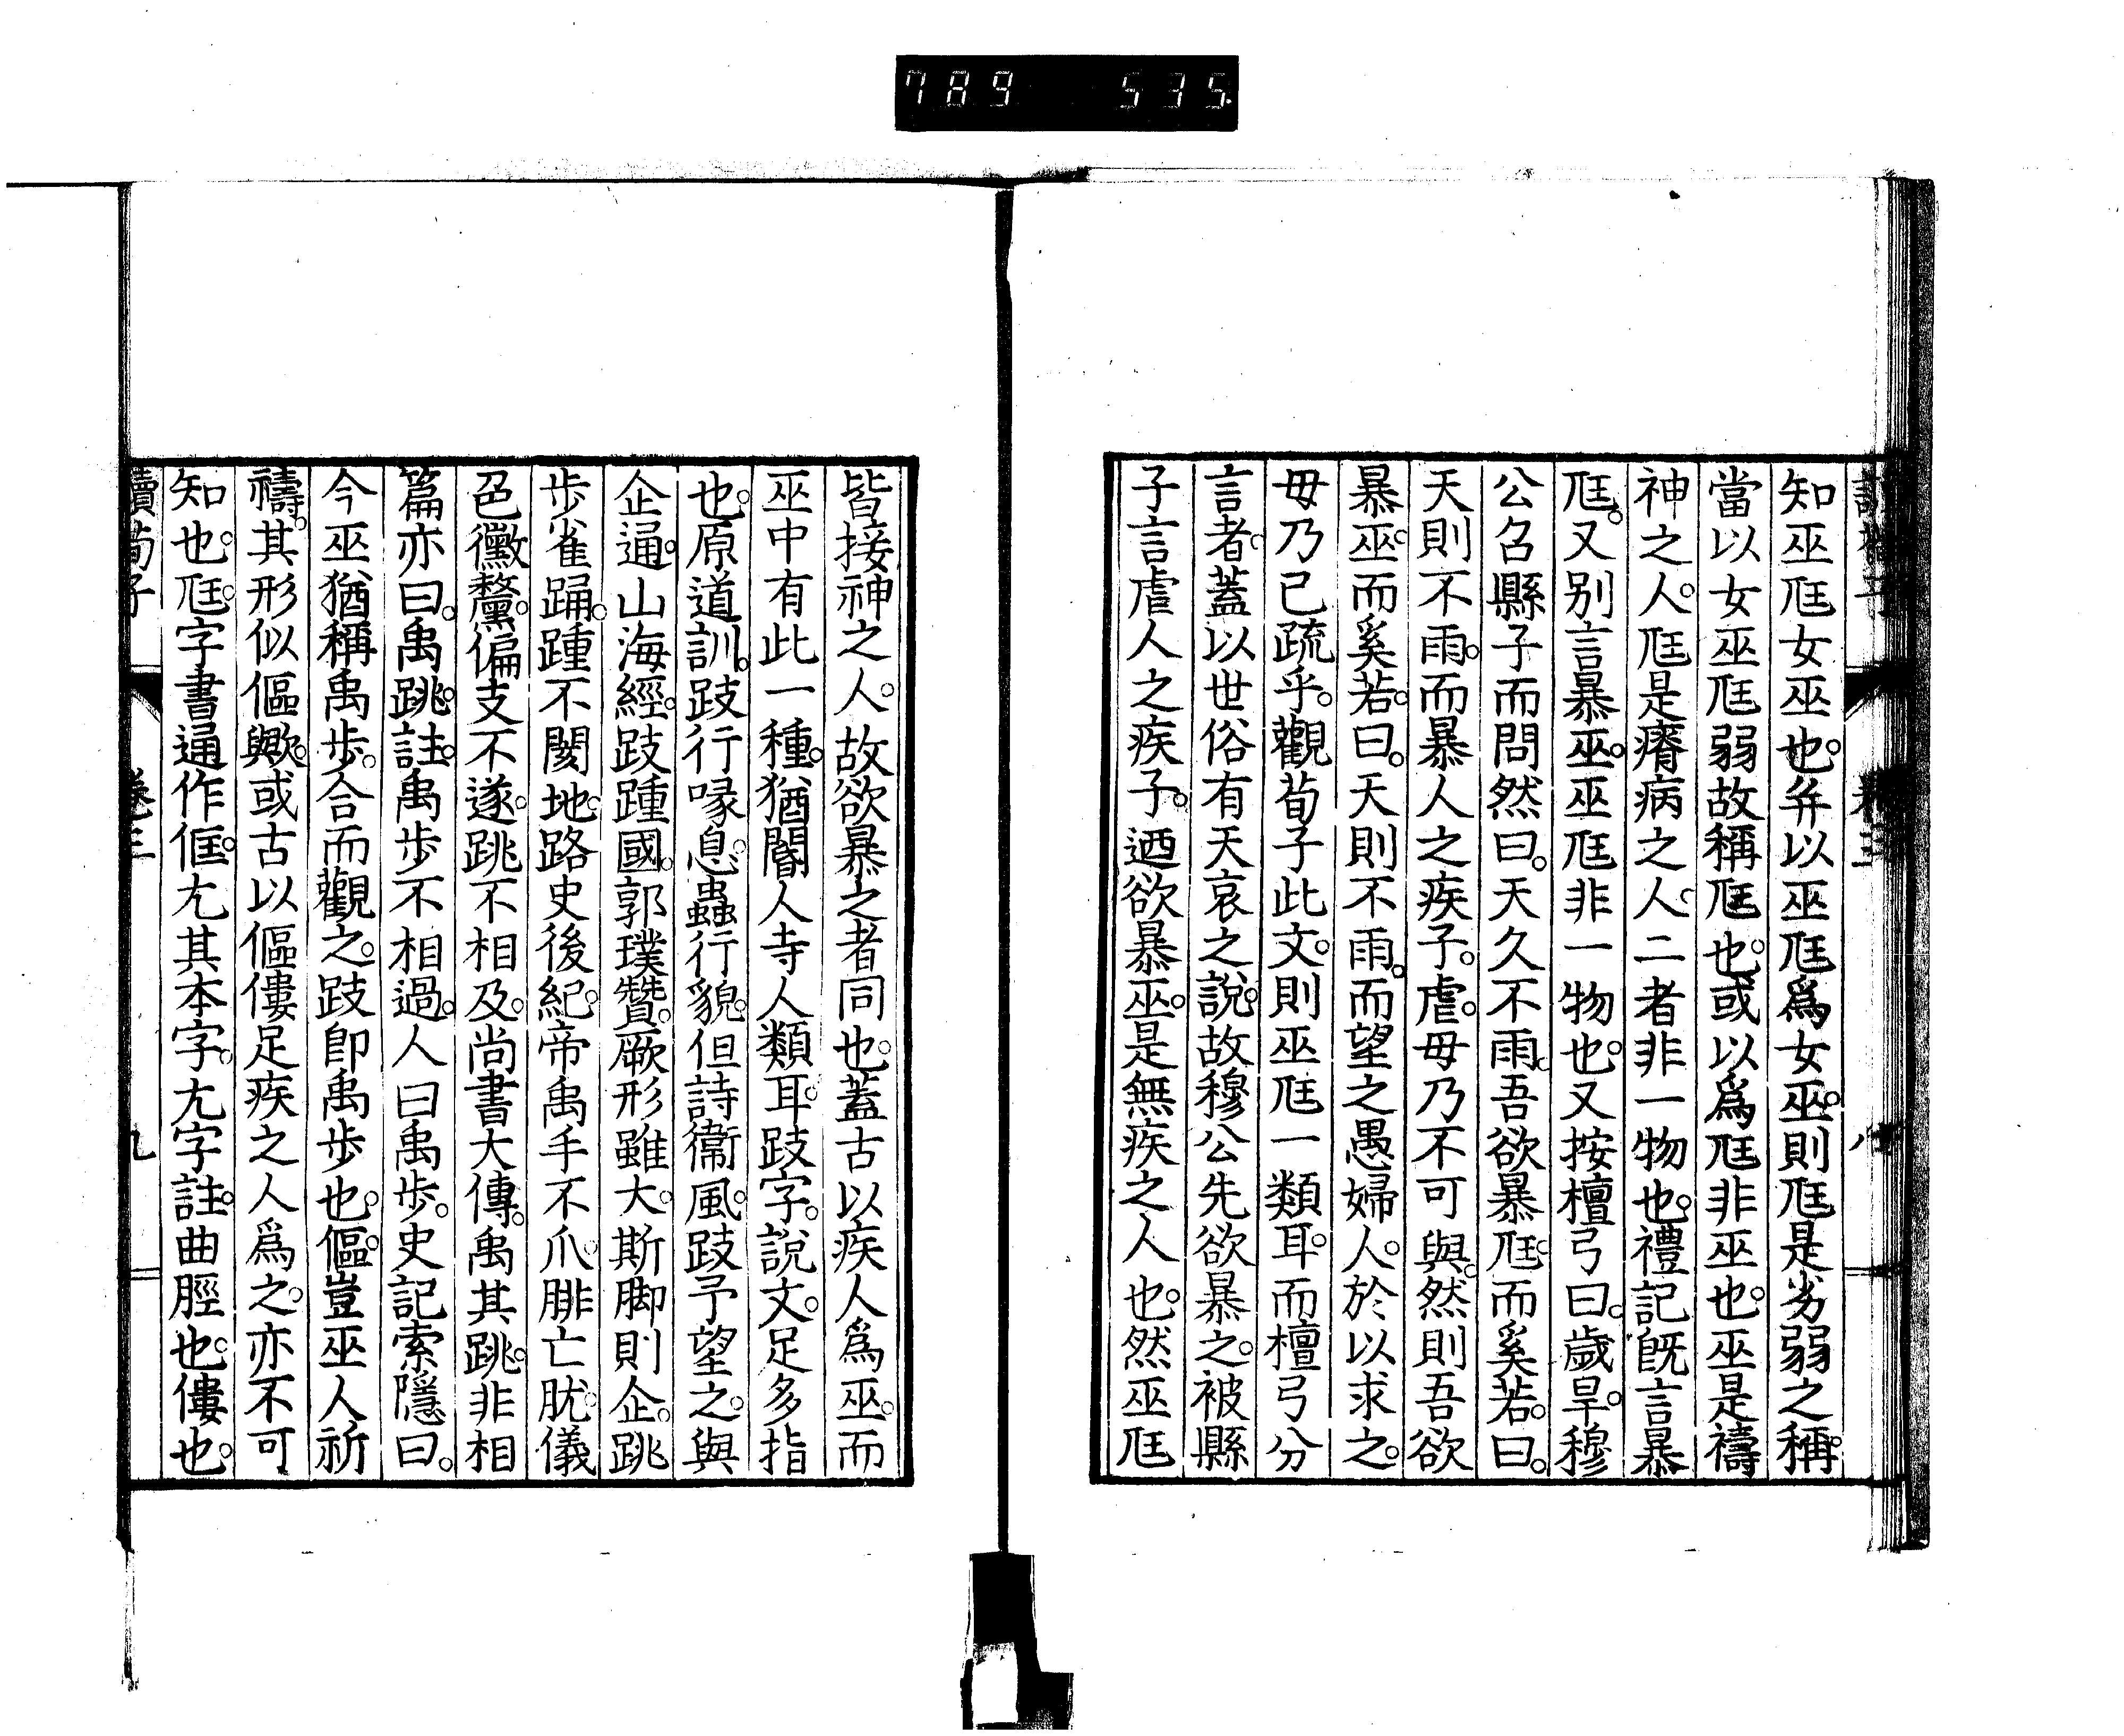 789 535
知巫尫女巫也。弁以巫尫爲女巫。則尫是劣弱之稱。
當以女巫尫弱故稱尫也。或以爲尫非巫也。巫是禱
神之人。尫是瘠病之人。二者非一物也。禮記既言暴
尫。又別言暴巫。巫尫非一物也。又按檀弓曰。歲旱。穆
公召縣子而問然曰。天久不雨。吾欲暴尫。而奚若。曰。
天則不雨。而暴人之疾子。虐。毋乃不可與。然則吾欲
暴巫。而奚若。曰。天則不雨。而望之愚婦人。於以求之。
毋乃已疏乎。觀荀子此文。則巫尫一類耳。而檀弓分
言者。蓋以世俗有天哀之說。故穆公先欲暴之。被縣
子言虐人之疾子。迺欲暴巫。是無疾之人也。然巫尫
皆接神之人。故欲暴之者同也。蓋古以疾人爲巫。而
巫中有此一種。猶閽人寺人類耳。跂字。說文。足多指
也。原道訓。跂行喙息。蟲行貌。但詩衞風。跂予望之。與
企通。山海經。跂踵國。郭璞贊。厥形雖大。斯脚則企。跳
步雀踊。踵不閡地。路史後紀。帝禹手不爪。腓亡胈。儀
邑黴黧。偏支不遂。跳不相及。尚書大傳。禹其跳。非相
篇亦曰。禹跳。註。禹步不相過。人曰禹步。史記索隱曰。
今巫猶稱禹步。合而觀之。跂卽禹步也。傴豈巫人祈
禱。其形似傴歟。或古以傴僂足疾之人爲之。亦不可
知也。尫。字書通作尪。尢其本字。尢字註。曲脛也。僂也。
讀荀子 卷三 九